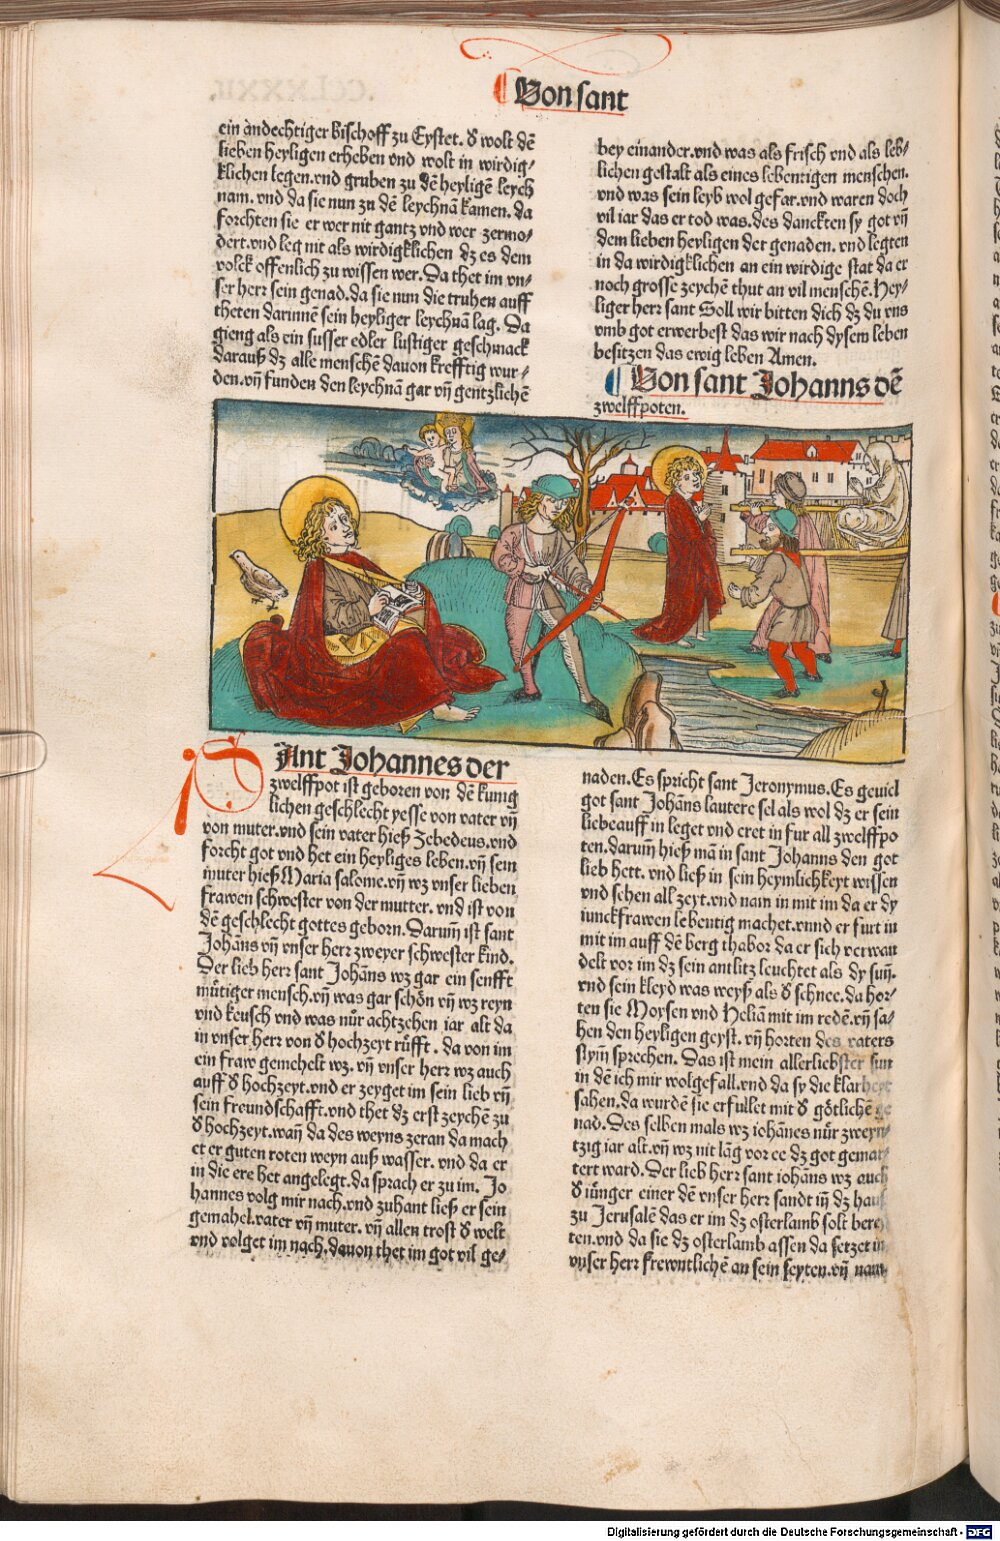 ¶ Von sant
ein andechtiger bischoff zu Eystet. d̕ wolt dē
lieben heyligen erheben vnd wolt in wirdig⸗
klichen legen. vnd gruben zu dē heyligē leych
nam. vnd da sie nun zu dē leychnā kamen. da
forchten sie er wer nit gantz vnd wer zermo⸗
dert. vnd leg nit als wirdigklichen dz es dem
volck offenlich zu wissen wer. Da thet im vn⸗
ser herr sein genad. da sie nun die truhen auff
theten darinnē sein heyliger leychnā lag. Da
gieng als ein susser edler lustiger geschmack
darauß dz alle menschē dauon krefftig wur⸗
den. vn̄ funden den leychnā gar vn̄ gentzlichē
bey einander. vnd was als frisch vnd als leb⸗
lichen gestalt als eines lebentigen menschen.
vnd was sein leyb wol gefar. vnd waren doch
vil iar das er tod was. des danckten sy got vn̄
dem lieben heyligen der genaden. vnd legten
in da wirdigklichen an ein wirdige stat da er
noch grosse zeychē thut an vil menschē. Hey⸗
liger herr sant Soll wir bitten dich dz du vns
vmb got erwerbest das wir nach dysem leben
besitzen das ewig leben Amen.
¶ Von sant Johanns dē
zwelffpoten.
SAnt Johannes der
zwelffpot ist geboren von dē kunig
lichen geschlecht yesse von vater vn̄
von muter. vnd sein vater hieß Zebedeus. vnd
forcht got vnd het ein heyliges leben. vn̄ sein
muter hieß Maria salome. vn̄ wz vnser lieben
frawen schwester von der mutter. vnd ist von
dē geschlecht gottes geborn. Darum̄ ist sant
Johās vn̄ vnser herr zweyer schwester kind.
Der lieb herr sant Johās wz gar ein senfft
mütiger mensch. vn̄ was gar schön vn̄ wz reyn
vnd keusch vnd was nür achtzehen iar alt da
in vnser herr von d̕ hochzeyt rüfft. da von im
ein fraw gemehelt wz. vn̄ vnser herr wz auch
auff d̕ hochzeyt. vnd er zeyget im sein lieb vn̄
sein freundschafft. vnd thet dz erst zeychē zu
d̕ hochzeyt. wan̄ da des weyns zeran da mach
et er guten roten weyn auß wasser. vnd da er
in die ere het angelegt. da sprach er zu im. Jo
hannes volg mir nach. vnd zuhant ließ er sein
gemahel. vater vn̄ muter. vn̄ allen trost d̕ welt
vnd volget im nach. dauon thet im got vil ge⸗
naden. Es spricht sant Jeronymus. Es geuiel
got sant Johās lautere sel als wol dz er sein
liebe auff in leget vnd eret in fur all zwelffpo
ten. darum̄ hieß mā in sant Johanns den got
lieb hett. vnd ließ in sein heymlichkeyt wissen
vnd sehen all zeyt. vnd nam in mit im da er dy
iunckfrawen lebentig machet. vnnd er furt in
mit im auff dē berg thabor da er sich verwan
delt vor im dz sein antlitz leuchtet als dy sun̄.
vnd sein kleyd was weyß als d̕ schnee. da hor⸗
ten sie Moysen vnd Heliā mit im redē. vn̄ sa⸗
hen den heyligen geyst. vn̄ horten des vaters
stym̄ sprechen. Das ist mein allerliebster sun
in dē ich mir wolgefall. vnd da sy die klarheyt
sahen. da wurdē sie erfullet mit d̕ götlichē ge
nad. Des selben mals wz iohānes nür zweyn⸗
tzig iar alt. vn̄ wz nit lāg vor ee dz got gemar⸗
tert ward. Der lieb herr sant iohās wz auch
d̕ iünger einer dē vnser herr sandt in̄ dz hauß
zu Jerusalē das er im dz osterlamb solt berey
ten. vnd da sie dz osterlamb assen da setzet in
vnser herr frewntlichē an sein seyten. vn̄ nam
Digitalisierung gefördert durch die Deutsche Forschungsgemeinschaft - DFG